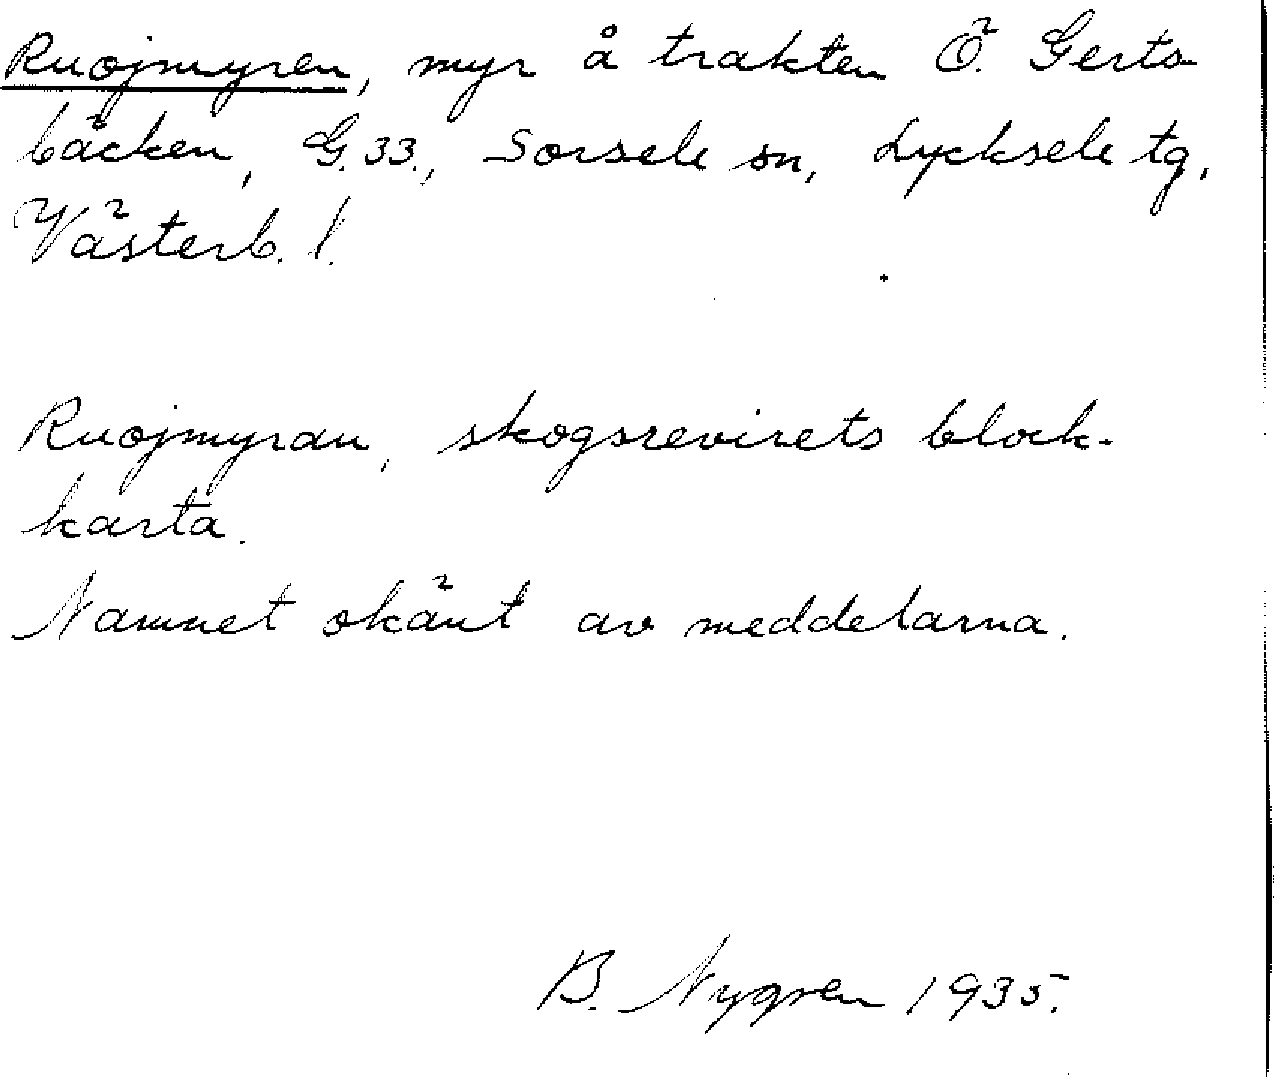 Ruojmyren, myr å trakten Ö. Gerts-
bäcken, G.33., Sorsele sn, Lycksele tg,
Västerb. l.
Ruojmyran, skogsrevirets block-
karta.
Namnet okänt av meddelarna.
B. Nygren 1935.